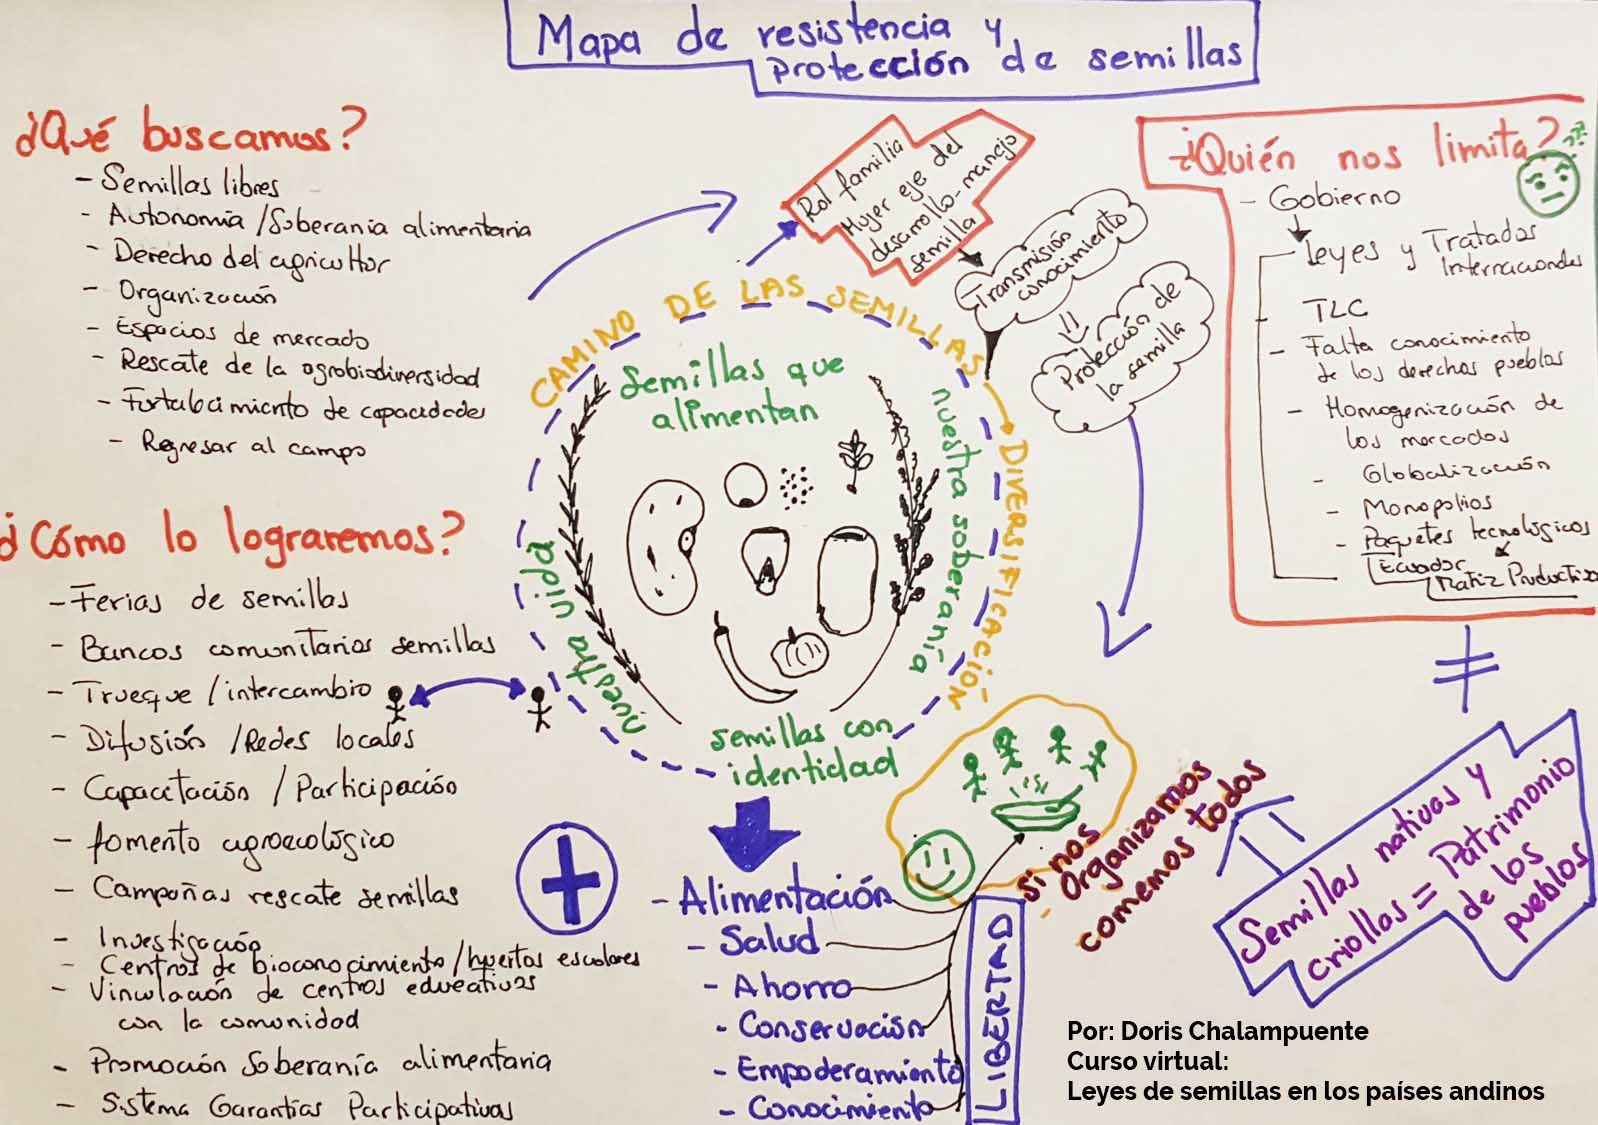 Mapa de resistencia y
protección de semillas
¿Qué buscamos?
- Semillas libres
- Autonomía / Soberanía alimentaria
- Derecho del agricultor
- Organización
- Espacios de mercado
- Rescate de la agrobiodiversidad
- Fortalecimiento de capacidades
- Regresar al campo
¿Cómo lo lograremos?
- Ferias de semillas
- Bancos comunitarios semillas
- Trueque / intercambio
- Difusión / Redes locales
- Capacitación / Participación
- fomento agroecológico
- Campañas rescate semillas
- Investigación
- Centros de bioconocimiento / huertos escolares
- Vinculación de centros educativos
con la comunidad
- Promoción Soberanía alimentaria
- Sistema Garantías Participativas
CAMINO DE LAS SEMILLAS
DIVERSIFICACIÓN
Semillas que
alimentan
nuestra soberanía
nuestra vida
semillas con
identidad
Rol familia
Mujer eje del
desarrollo-manejo
semilla
Transmisión
conocimiento
Protección de
la semilla
- Alimentación
- Salud
- Ahorro
- Conservación
- Empoderamiento
- Conocimiento
LIBERTAD
si nos
organizamos
comemos todos
¿Quién nos limita?
- Gobierno
Leyes y Tratados
Internacionales
TLC
- Falta conocimiento
de los derechos pueblos
- Homogenización de
los mercados
- Globalización
- Monopolios
- Paquetes tecnológicos
Ecuador
Matiz Productiva
≠
Semillas nativas y
criollas = Patrimonio
de los
pueblos
Por: Doris Chalampuente
Curso virtual:
Leyes de semillas en los países andinos